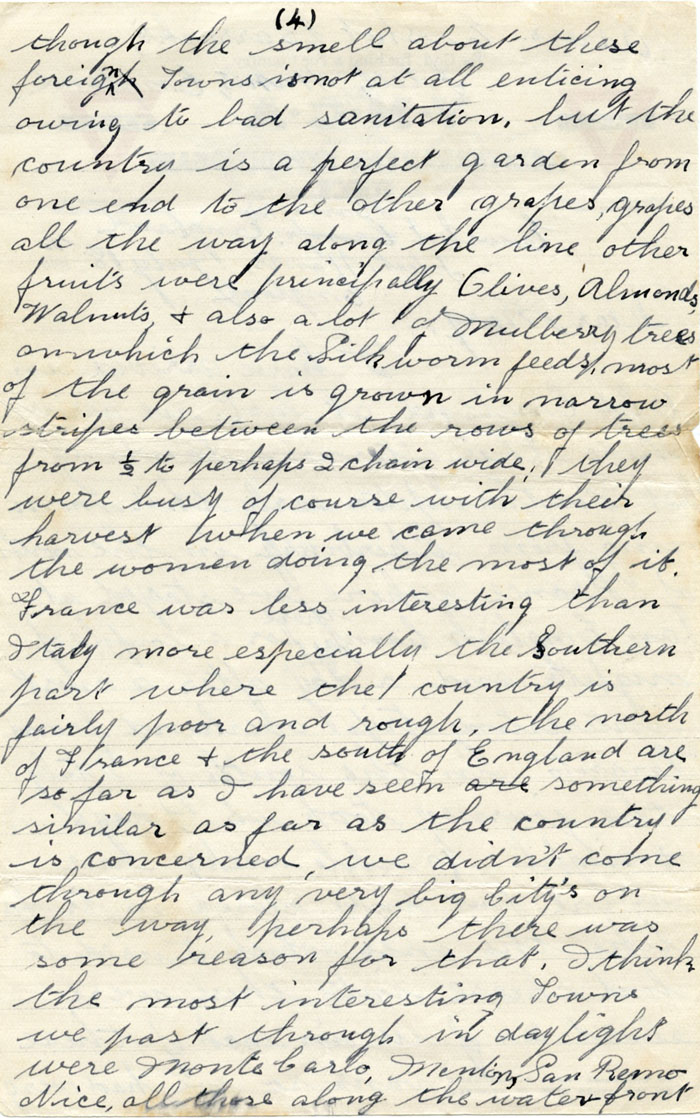 (4)
though the smell about these
foreign Towns is not at all enticing
owing to bad sanitation, but the
country is a perfect garden from
one end to the other grapes, grapes
all the way along the line other
fruit's were principally Olives, Almonds,
Walnuts, & also a lot of Mulberry trees
on which the Silkworm feeds, most
of the grain is grown in narrow
stripes between the rows of trees
from ½ to perhaps 2 chain wide, they
were busy of course with their
harvest when we came through
the women doing the most of it.
France was less interesting than
Italy more especially the Southern
part where the country is
fairly poor and rough, the north
of France & the south of England are
so far as I have seen are something
similar as far as the country
is concerned, we didn't come
through any very big City's on
the way, perhaps there was
some reason for that. I think
the most interesting Towns
we past through in daylight
were Monte Carlo, Menton, San Remo
Nice, all those along the water front